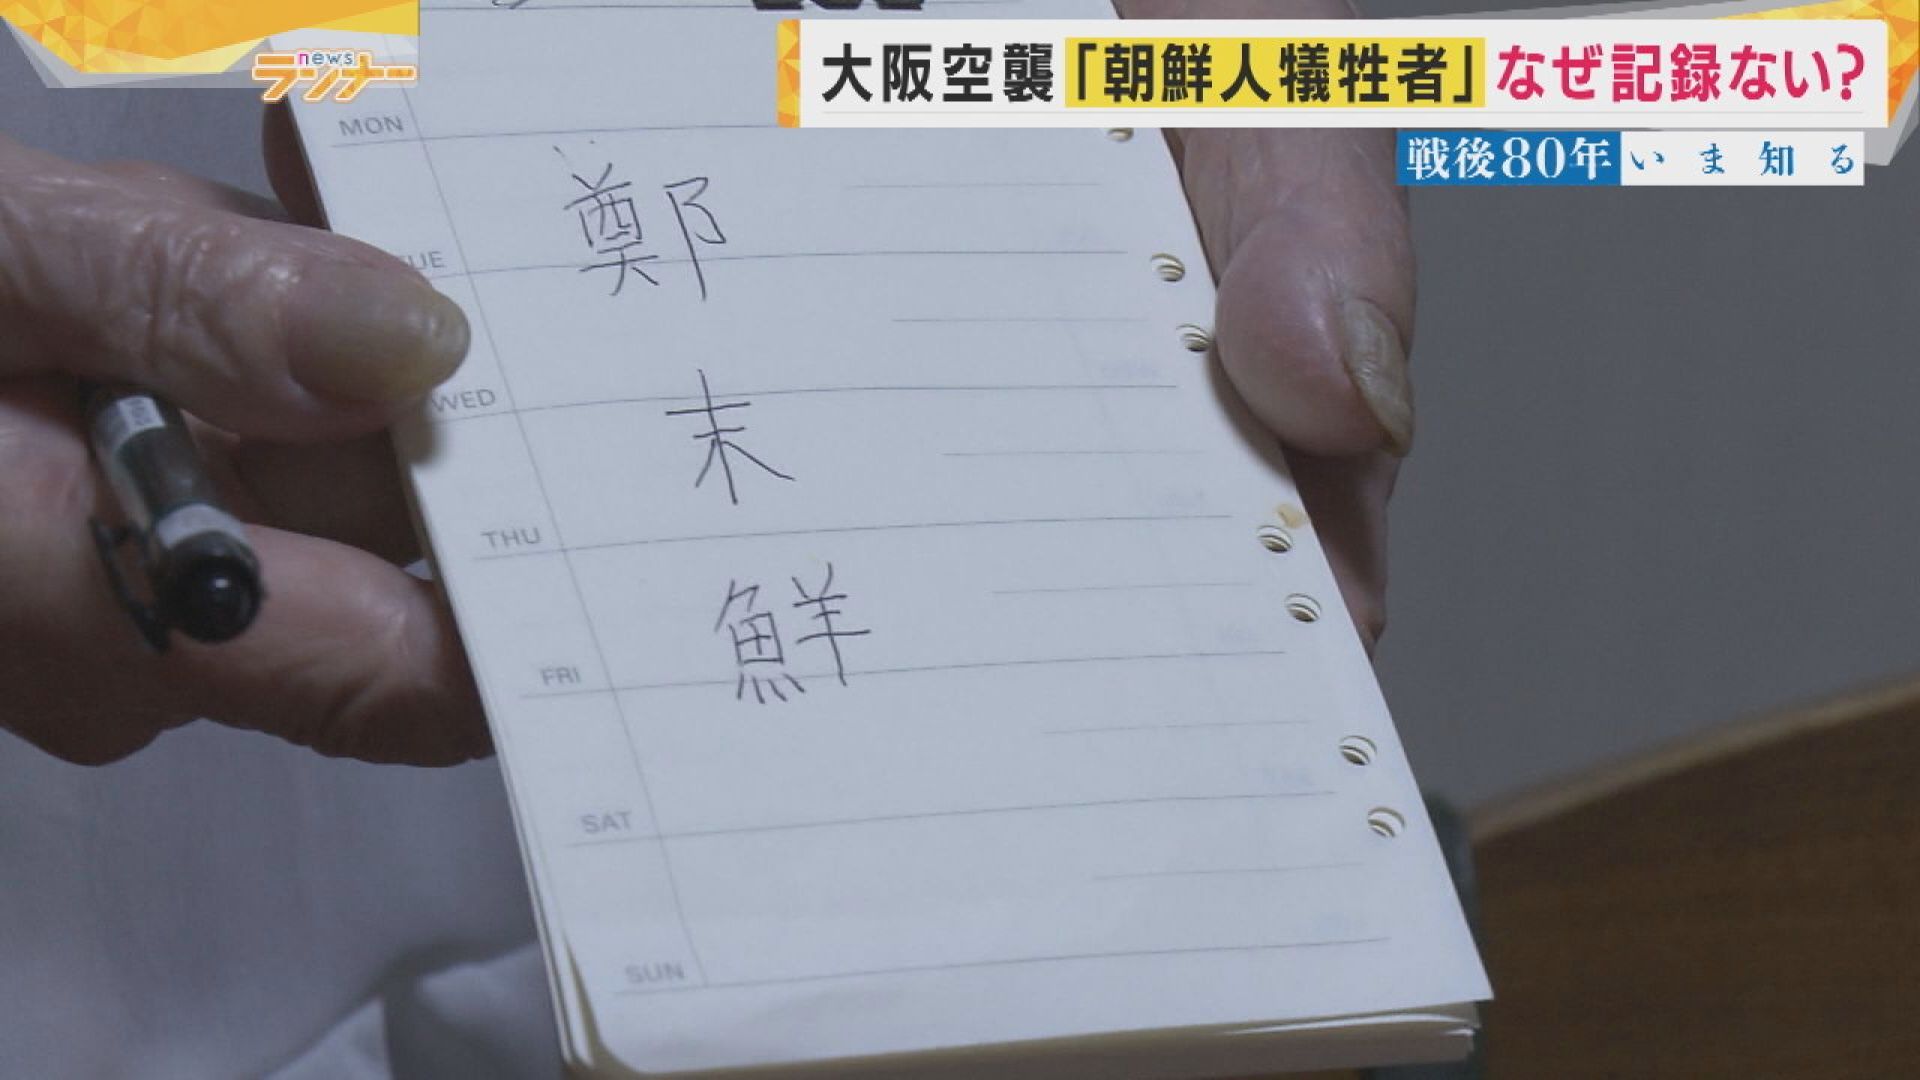 news
ランナー
大阪空襲「朝鮮人犠牲者」なぜ記録ない?
戦後80年 いま知る
MON
TUE
WED
THU
FRI
SAT
SUN
鄭
末
鮮